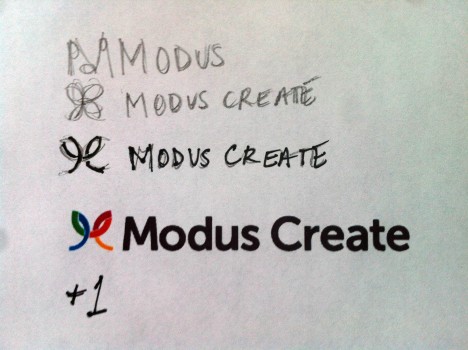 MODUS
MODUS CREATE
MODUS CREATE
Modus Create
+1